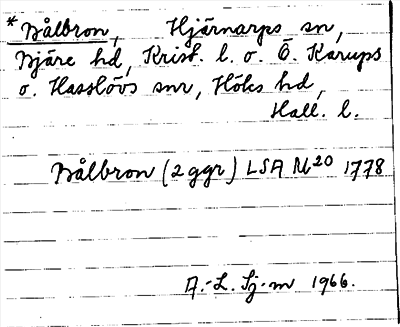 * Bålbron, Hjärnarps sn,
Bjäre hd, Krist. l. o. Ö. Karups
o. Hasslövs snr, Höks hd,
Hall. l.
Bålbron (2 ggr) LSA No 20 1778
A.-L. Sj-m 1966.